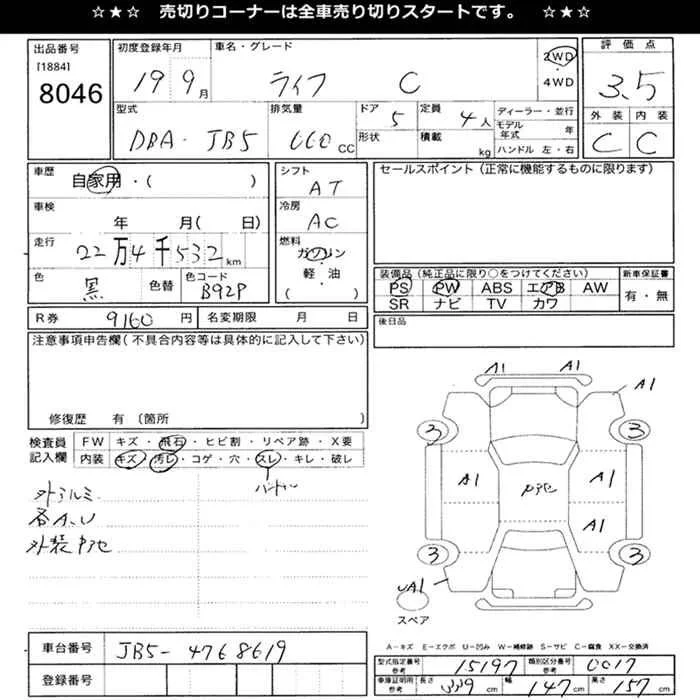 ☆★☆ 売切りコーナーは全車売り切りスタートです。 ☆★☆
出品番号 初度登録年月 車名・グレード 評価点
[1884]
8046 19 9月 ライフ C 2WD ・ 4WD 3.5
型式 排気量 ドア 定員 ディーラー・並行 外装 内装
DBA-JB5 660CC 5 4人 モデル年式 年 C C
形状 積載 kg ハンドル 左・右
車歴 自家用・( ) シフト AT セールスポイント(正常に機能するものに限ります)
車検 年 月( 日) 冷房 AC
走行 22万4千532km 燃料 ガソリン・軽・油 ( )
色 黒 色替 色コード B92P
装備品(純正品に限り○をつけてください) 新車保証書
PS PW ABS エアB AW 有・無
SR ナビ TV カワ
R券 9160円 名変期限 月 日 後日品
注意事項申告欄(不具合内容等は具体的に記入して下さい)
修復歴 有〔箇所
検査員記入欄 FW キズ・飛石・ヒビ割・リペア跡・X要
内装 キズ・汚レ・コゲ・穴・スレ・キレ・破レ
ハンドル
外アルミ
各A.U
外装
A1 A1 A1
3 3
A1 A1
A1
3 3
UA1
スペア
A-キズ E-エクボ U-凹み W-補修跡 S-サビ C-腐食 XX-交換済
車台番号 JB5-4768619
登録番号
型式指定番号 参考 15197 類別区分番号 参考 0017
車庫証明用 参考 長さ 339cm 幅 147cm 高さ 157cm